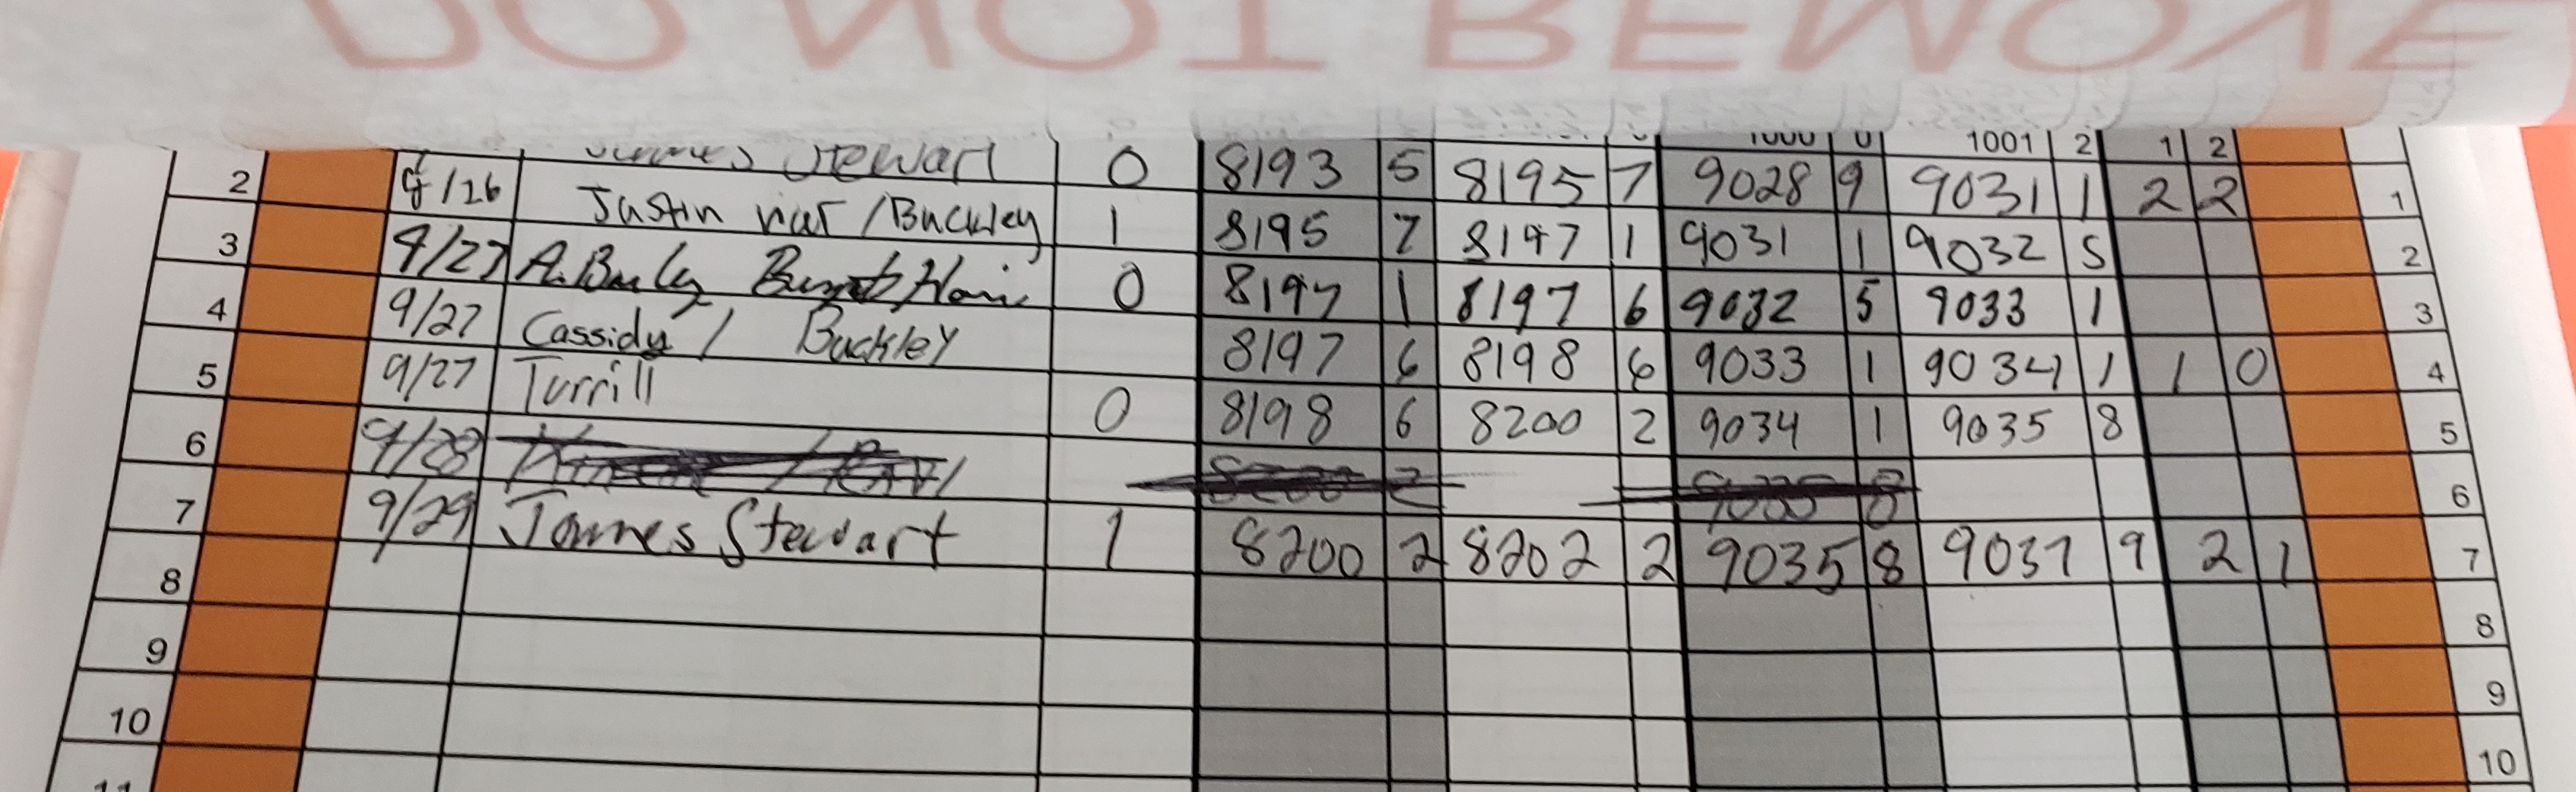 DO NOT REMOVE
1000 0 1001 2 1 2
James Stewart 0 8193 5 8195 7 9028 9 9031 1 2 2 1
2 9/26 Justin / Buckley 1 8195 7 8197 1 9031 1 9032 5 2
3 9/27 0 8197 1 8197 6 9032 5 9033 1 3
4 9/27 Cassidy / Buckley 8197 6 8198 6 9033 1 9034 1 1 0 4
5 9/27 Turrill 0 8198 6 8200 2 9034 1 9035 8 5
6 9/28 6
7 9/29 James Stewart 1 8200 2 8202 2 9035 8 9037 9 2 1 7
8 8
9 9
10 10
11